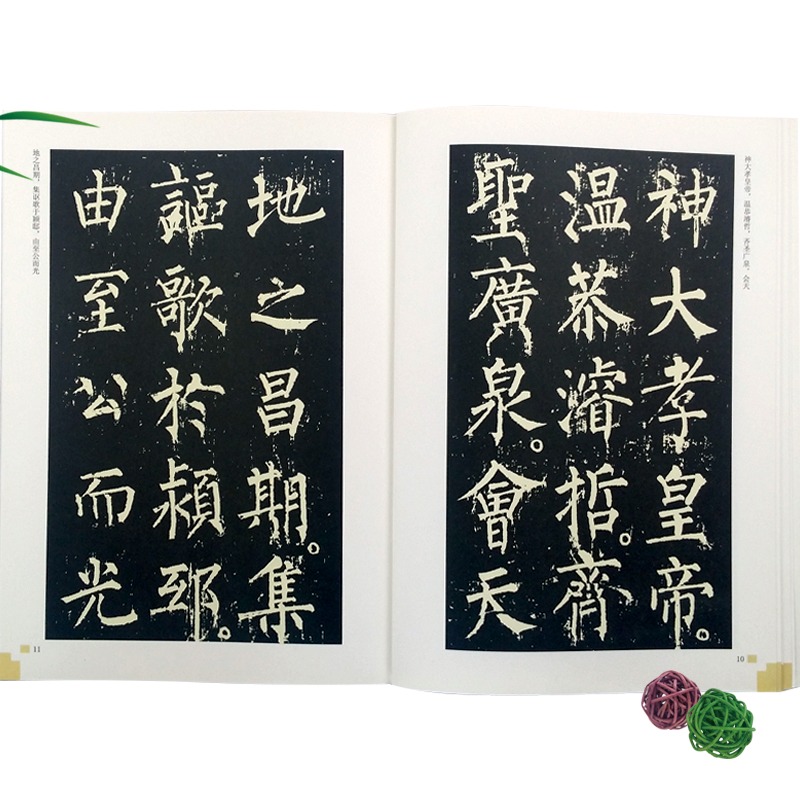 神大孝皇帝，温恭濬哲，齐圣广泉，会天
神大孝皇帝。
温恭濬哲。齊
聖廣泉。會天
10
地之昌期。集
謳歌於潁邸。
由至公而光
地之昌期，集讴歌于颍邸，由至公而光
11